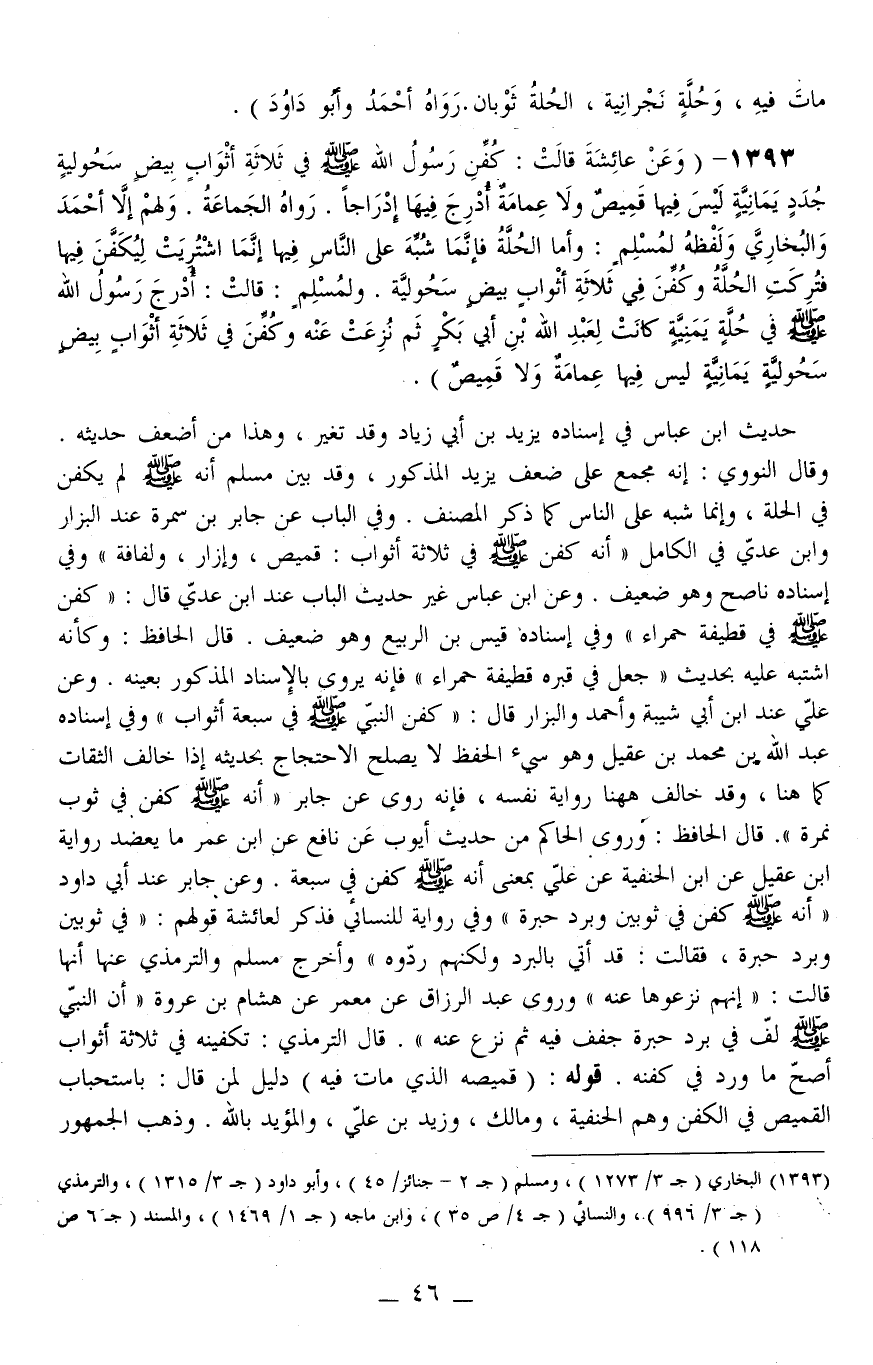 ماتَ فيهِ ، وَحُلَّةٍ نَجْرانِية ، الحُلةُ ثَوْبان. رَوَاهُ أحْمَدُ وأبُو دَاوُدَ ) .
١٣٩٣- ( وَعَنْ عائِشَةَ قالَتْ : كُفِّنِ رَسُولُ الله ﷺ في ثَلاثَةِ أثْوَابٍ بِيضٍ سَحُوليةٍ
جُدَدٍ يَمَانِيَّةٍ لَيْسَ فِيها قَمِيصٌ ولَا عِمامَةٌ أُدْرِجَ فِيهَا إدْرَاجاً . رَواهُ الجَماعَةُ . وَلهمْ إلَّا أحْمَدَ
وَالبُخارِيَّ وَلَفْظهُ لمُسْلِمٍ : وأما الحُلَّةُ فإنَّمَا شُبِّهَ على النَّاسِ فِيها إنَّمَا اشْتُرِيَتْ لِيُكَفَّنَ فِيها
فتُرِكَتِ الحُلَّةُ وكُفِّنَ فِي ثَلاثَةِ أثْوابٍ بيضٍ سَحُوليَّة . ولمُسْلِمٍ : قالتْ : أُدْرجَ رَسُولُ الله
ﷺ في حُلَّةٍ يَمَنِيَّةٍ كانَتْ لِعَبْدِ الله بْنِ أبي بَكْرٍ ثَم نُزِعَتْ عَنْه وكُفِّنَ في ثَلاثَةِ أثْوَابٍ بِيضٍ
سَحُوليَّةٍ يَمَانِيَّةٍ ليس فِيها عِمامَةٌ وَلا قَمِيصٌ ) .
حديث ابن عباس في إسناده يزيد بن أبي زياد وقد تغير ، وهذا من أضعف حديثه .
وقال النووي : إنه مجمع على ضعف يزيد المذكور ، وقد بين مسلم أنه ﷺ لم يكفن
في الحلة ، وإنما شبه على الناس كما ذكر المصنف . وفي الباب عن جابر بن سمرة عند البزار
وابن عديّ في الكامل « أنه كفن ﷺ في ثلاثة أثواب : قميص ، وإزار ، ولفافة » وفي
إسناده ناصح وهو ضعيف . وعن ابن عباس غير حديث الباب عند ابن عديّ قال : « كفن
ﷺ في قطيفة حمراء » وفي إسناده قيس بن الربيع وهو ضعيف . قال الحافظ : وكأنه
اشتبه عليه بحديث « جعل في قبره قطيفة حمراء » فإنه يروى بالإسناد المذكور بعينه . وعن
عليّ عند ابن أبي شيبة وأحمد والبزار قال : « كفن النبيّ ﷺ في سبعة أثواب » وفي إسناده
عبد الله بن محمد بن عقيل وهو سيء الحفظ لا يصلح الاحتجاج بحديثه إذا خالف الثقات
كما هنا ، وقد خالف ههنا رواية نفسه ، فإنه روى عن جابر « أنه ﷺ كفن في ثوب
نمرة ». قال الحافظ : وروى الحاكم من حديث أيوب عَن نافع عن ابن عمر ما يعضد رواية
ابن عقيل عن ابن الحنفية عن عليّ بمعنى أنه ﷺ كفن في سبعة . وعن جابر عند أبي داود
« أنه ﷺ كفن في ثوبين وبرد حبرة » وفي رواية للنسائي فذكر لعائشة قولهم : « في ثوبين
وبرد حبرة ، فقالت : قد أتي بالبرد ولكنهم ردّوه » وأخرج مسلم والترمذي عنها أنها
قالت : « إنهم نزعوها عنه » وروى عبد الرزاق عن معمر عن هشام بن عروة « أن النبيّ
ﷺ لفّ في برد حبرة جفف فيه ثم نزع عنه » . قال الترمذي : تكفينه في ثلاثة أثواب
أصحّ ما ورد في كفنه . قوله : ( قميصه الذي مات فيه ) دليل لمن قال : باستحباب
القميص في الكفن وهم الحنفية ، ومالك ، وزيد بن عليّ ، والمؤيد بالله . وذهب الجمهور
(١٣٩٣) البخاري ( جـ ٣/ ١٢٧٣ ) ، ومسلم ( جـ ٢ - جنائز/ ٤٥ ) ، وأبو داود ( جـ ٣/ ١٣١٥ ) ، والترمذي
( جـ ٣/ ٩٩٦ ) ، والنسائي ( جـ ٤/ ص ٣٥ ) ، وابن ماجه ( جـ ١/ ١٤٦٩ ) ، والمسند ( جـ ٦ ص
١١٨ ) .
_ ٤٦ _